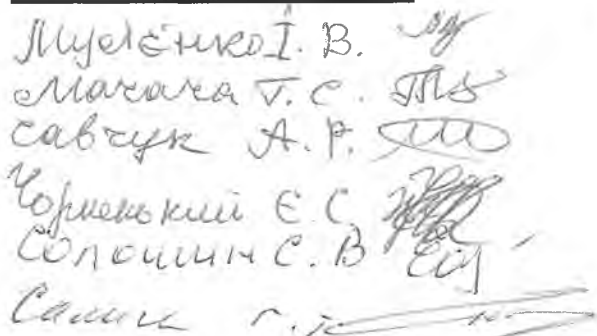 Мусієнко І. В.
Магага Т. С.
Савчук А. Р.
Чорненький Є. С.
Солошин С. В
Г.